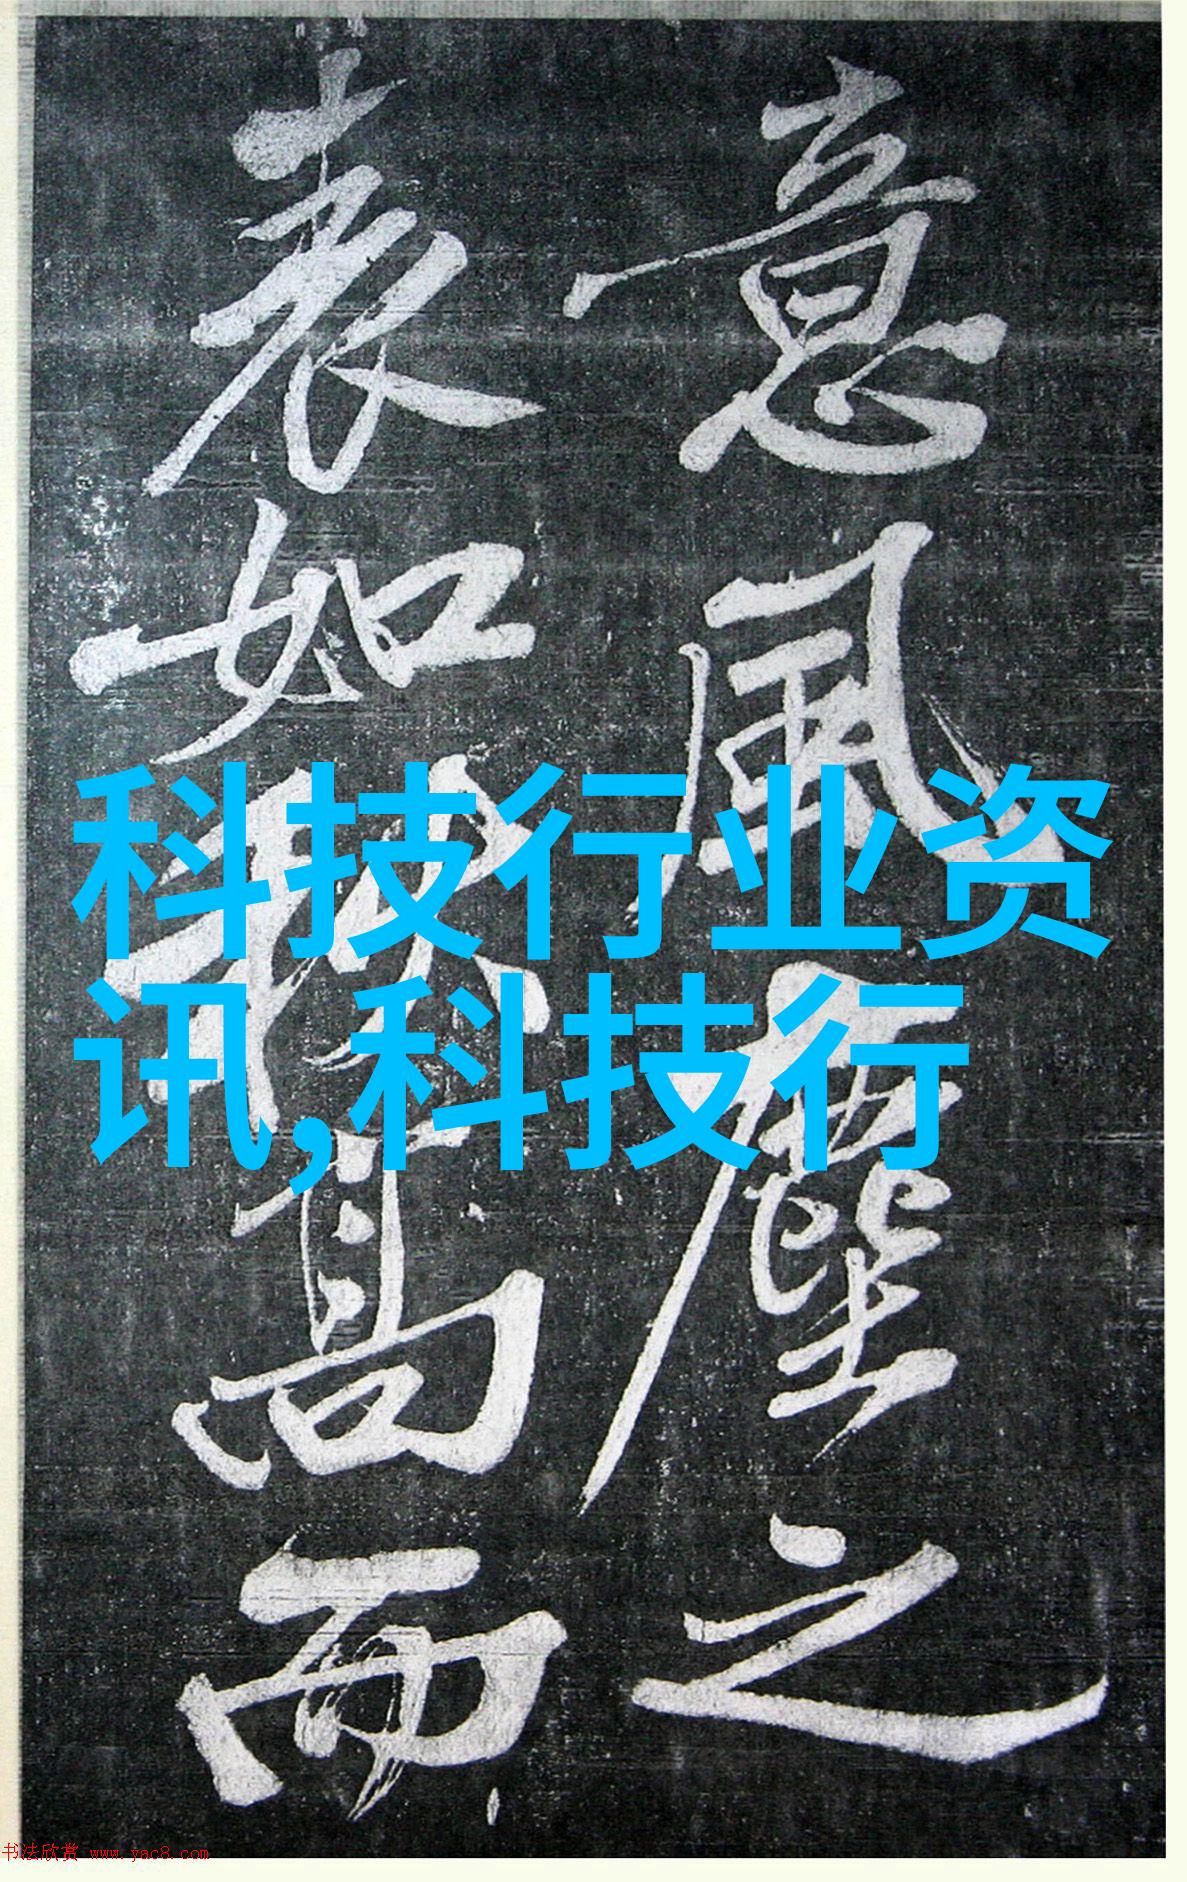 意風塵之
表如高而
科技行业资
讯,科技行
书法欣赏 www.yac8.com